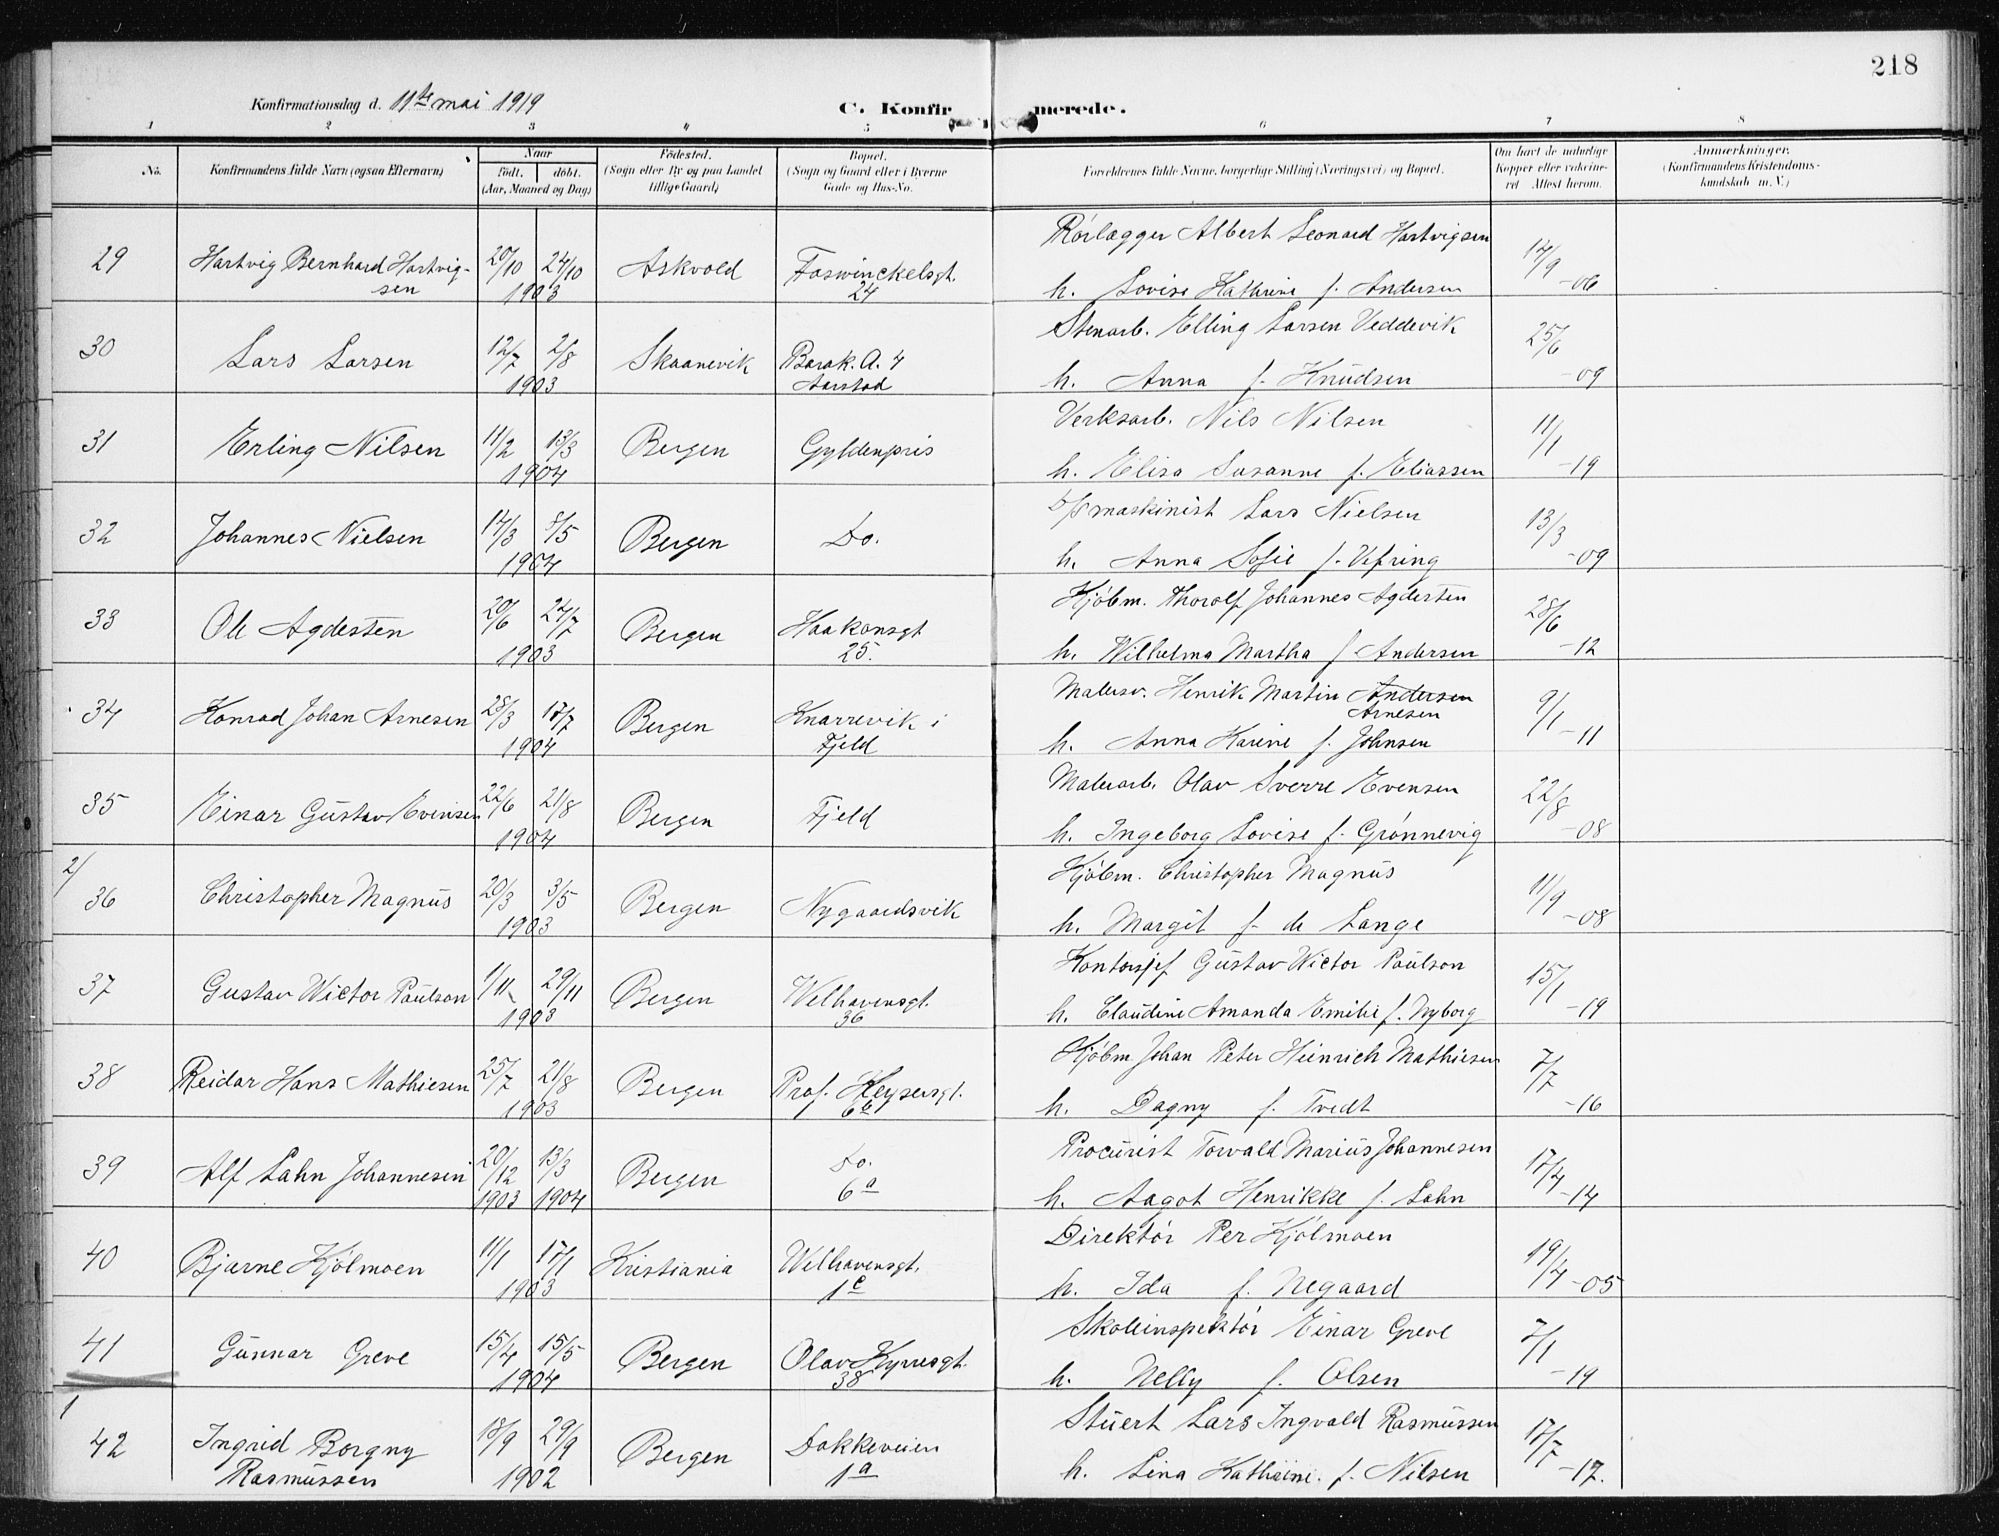 218
Konfirmationsdag d. 11te mai 1919 C. Konfirmerede.
1 2 3 4 5 6 7 8
No. Konfirmandens fulde Navn (ogsaa Efternavn) Naar født. døbt. (Aar, Maaned og Dag) Fødested. (Sogn eller By og paa Landet tillige Gaard) Bopæl. (Sogn og Gaard eller i Byerne Gade og Hus-No. Forældrenes fulde Navne, borgerlige Stilling (Næringsvei) og Bopæl. Om havt de naturlige Kopper eller vakcineret Attest herom. Anmærkninger. (Konfirmandens Kristendomskundskab m. V.)
29 Hartvig Bernhard Hartvigsen 20/10 24/10 1903 Askvold Foswinckelsgt. 24 Rørlægger Albert Leonard Hartvigsen
h. Lovise Kathrine f. Andersen 14/9 -06
30 Lars Larsen 12/7 2/8 1903 Skaanevik Barak. A. 4 Aarstad Stenarb. Elling Larsen Veddevik
h. Anna f. Knudsen 25/6 -09
31 Erling Nilsen 11/2 13/3 1904 Bergen Gyldenpris Verksarb. Nils Nilsen
h. Elisa Susanne f. Eliassen 11/1 -19
32 Johannes Nielsen 14/3 8/5 1904 Bergen Do. D/S maskinist Lars Nielsen
h. Anna Sofie f. Vefring 13/3 -09
33 Ole Agdesten 20/6 24/7 1903 Bergen Haakonsgt 25. Kjøbm. Thorolf Johannes Agdesten
h. Wilhelma Martha f. Andersen 28/6 -12
34 Konrad Johan Arnesen 28/3 17/7 1904 Bergen Knarrevik i Fjeld Malersv. Henrik Martin Andersen Arnesen
h. Anna Karine f. Johnsen 9/1 -11
35 Einar Gustav Evensen 22/6 21/8 1904 Bergen Fjeld Malerarb. Olav Sverre Evensen
h. Ingeborg Lovise f. Grønnevig 22/8 -08
2/
36 Christopher Magnus 20/3 3/5 1903 Bergen Nygaardsvik Kjøbm. Christopher Magnus
h. Margit f. de Lange 11/9 -08
37 Gustav Wictor Paulson 1/11 29/11 1903 Bergen Welhavensgt. 36 Kontorsjef Gustav Wictor Paulson
h. Claudine Amanda Emilie f. Nyborg 15/1 -19
38 Reidar Hans Mathiesen 25/7 21/8 1903 Bergen Prof. Keysersgt. 6b Kjøbm Johan Peter Heinrich Mathiesen
h. Dagny f. Tvedt 7/7 -16
39 Alf Lahn Johannesen 20/12 1903 13/3 1904 Bergen Do. 6a Procurist Torvald Marius Johannesen
h. Aagot Henrikke f. Lahn 17/4 -14
40 Bjarne Kjølmoen 11/1 17/1 1903 Kristiania Welhavensgt. 1c Direktør Per Kjølmoen
h. Ida f. Negaard 19/4 -05
41 Gunnar Greve 15/4 15/5 1904 Bergen Olav Kyrresgt. 38 Skoleinspektør Einar Greve
h. Nelly f. Olsen 7/1 -19
1
42 Ingrid Borgny Rasmussen 18/9 29/9 1902 Bergen Dokkeveien 1a Stuert Lars Ingvald Rasmussen
h. Lina Kathrine. f. Nilsen 17/7 -17.